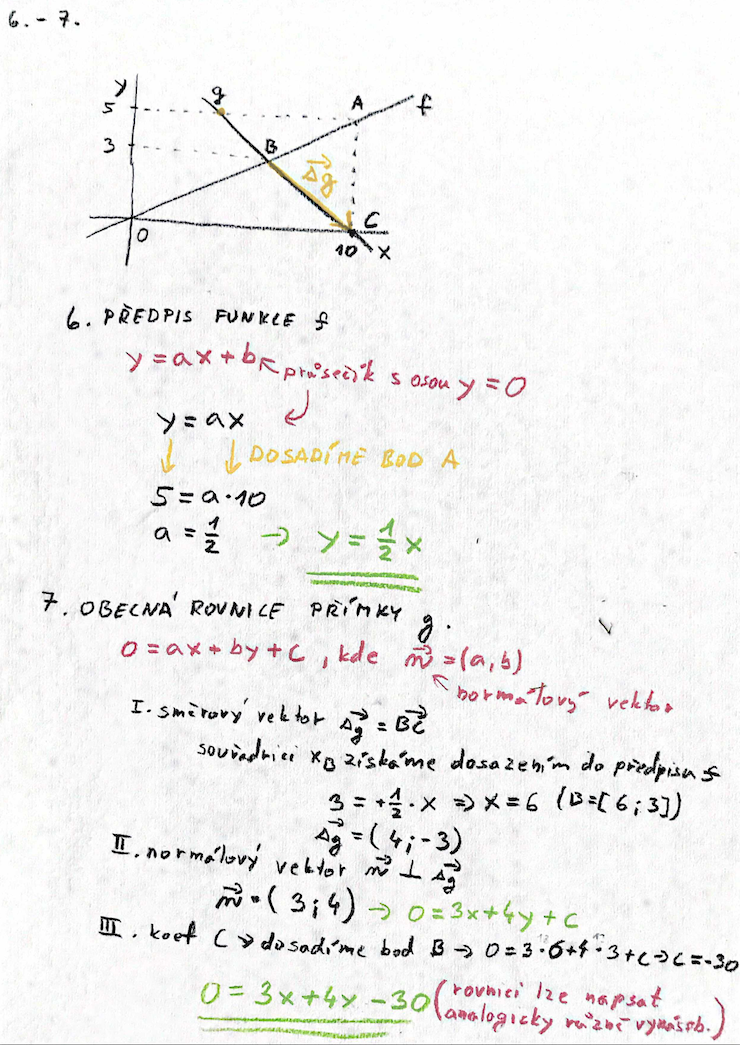 6. - 7.
y
g
5
A
f
3
B
Δg
C
0
10
x
6. PŘEDPIS FUNKCE f
y = ax + b ← průsečík s osou y = 0
y = ax
DOSADÍME BOD A
5 = a · 10
a = 1/2 → y = 1/2 x
7. OBECNÁ ROVNICE PŘÍMKY g.
0 = ax + by + c, kde n⃗ = (a, b)
normálový vektor
I. směrový vektor Δg⃗ = BC⃗
souřadnici x_B získáme dosazením do předpisu f
3 = +1/2 · x ⇒ x = 6 (B = [6; 3])
Δg⃗ = (4; -3)
II. normálový vektor n⃗ ⊥ Δg⃗
n⃗ = (3; 4) → 0 = 3x + 4y + c
III. koef C → dosadíme bod B → 0 = 3 · 6 + 4 · 3 + c → c = -30
0 = 3x + 4x - 30 (rovnici lze napsat
analogicky různě vynásob.)